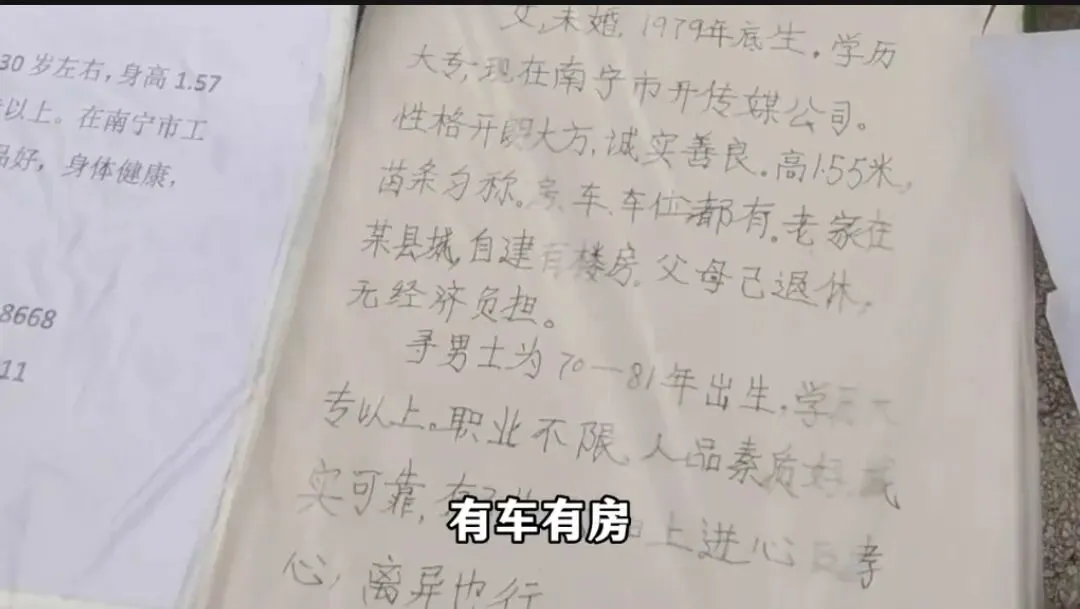 30 岁左右，身高 1.57
以上。在南宁市工
品好，身体健康，
8668
11
女，未婚，1979年底生。学历
大专，现在南宁市开传媒公司。
性格开朗大方，诚实善良。高1.55米，
苗条匀称。房、车、车位都有。老家在
某县城，自建有楼房。父母己退休，
无经济负担。
寻男士为70—81年出生，学历大
专以上。职业不限，人品素质好，诚
实可靠，有
上进心
孝
心，离异也行
有车有房